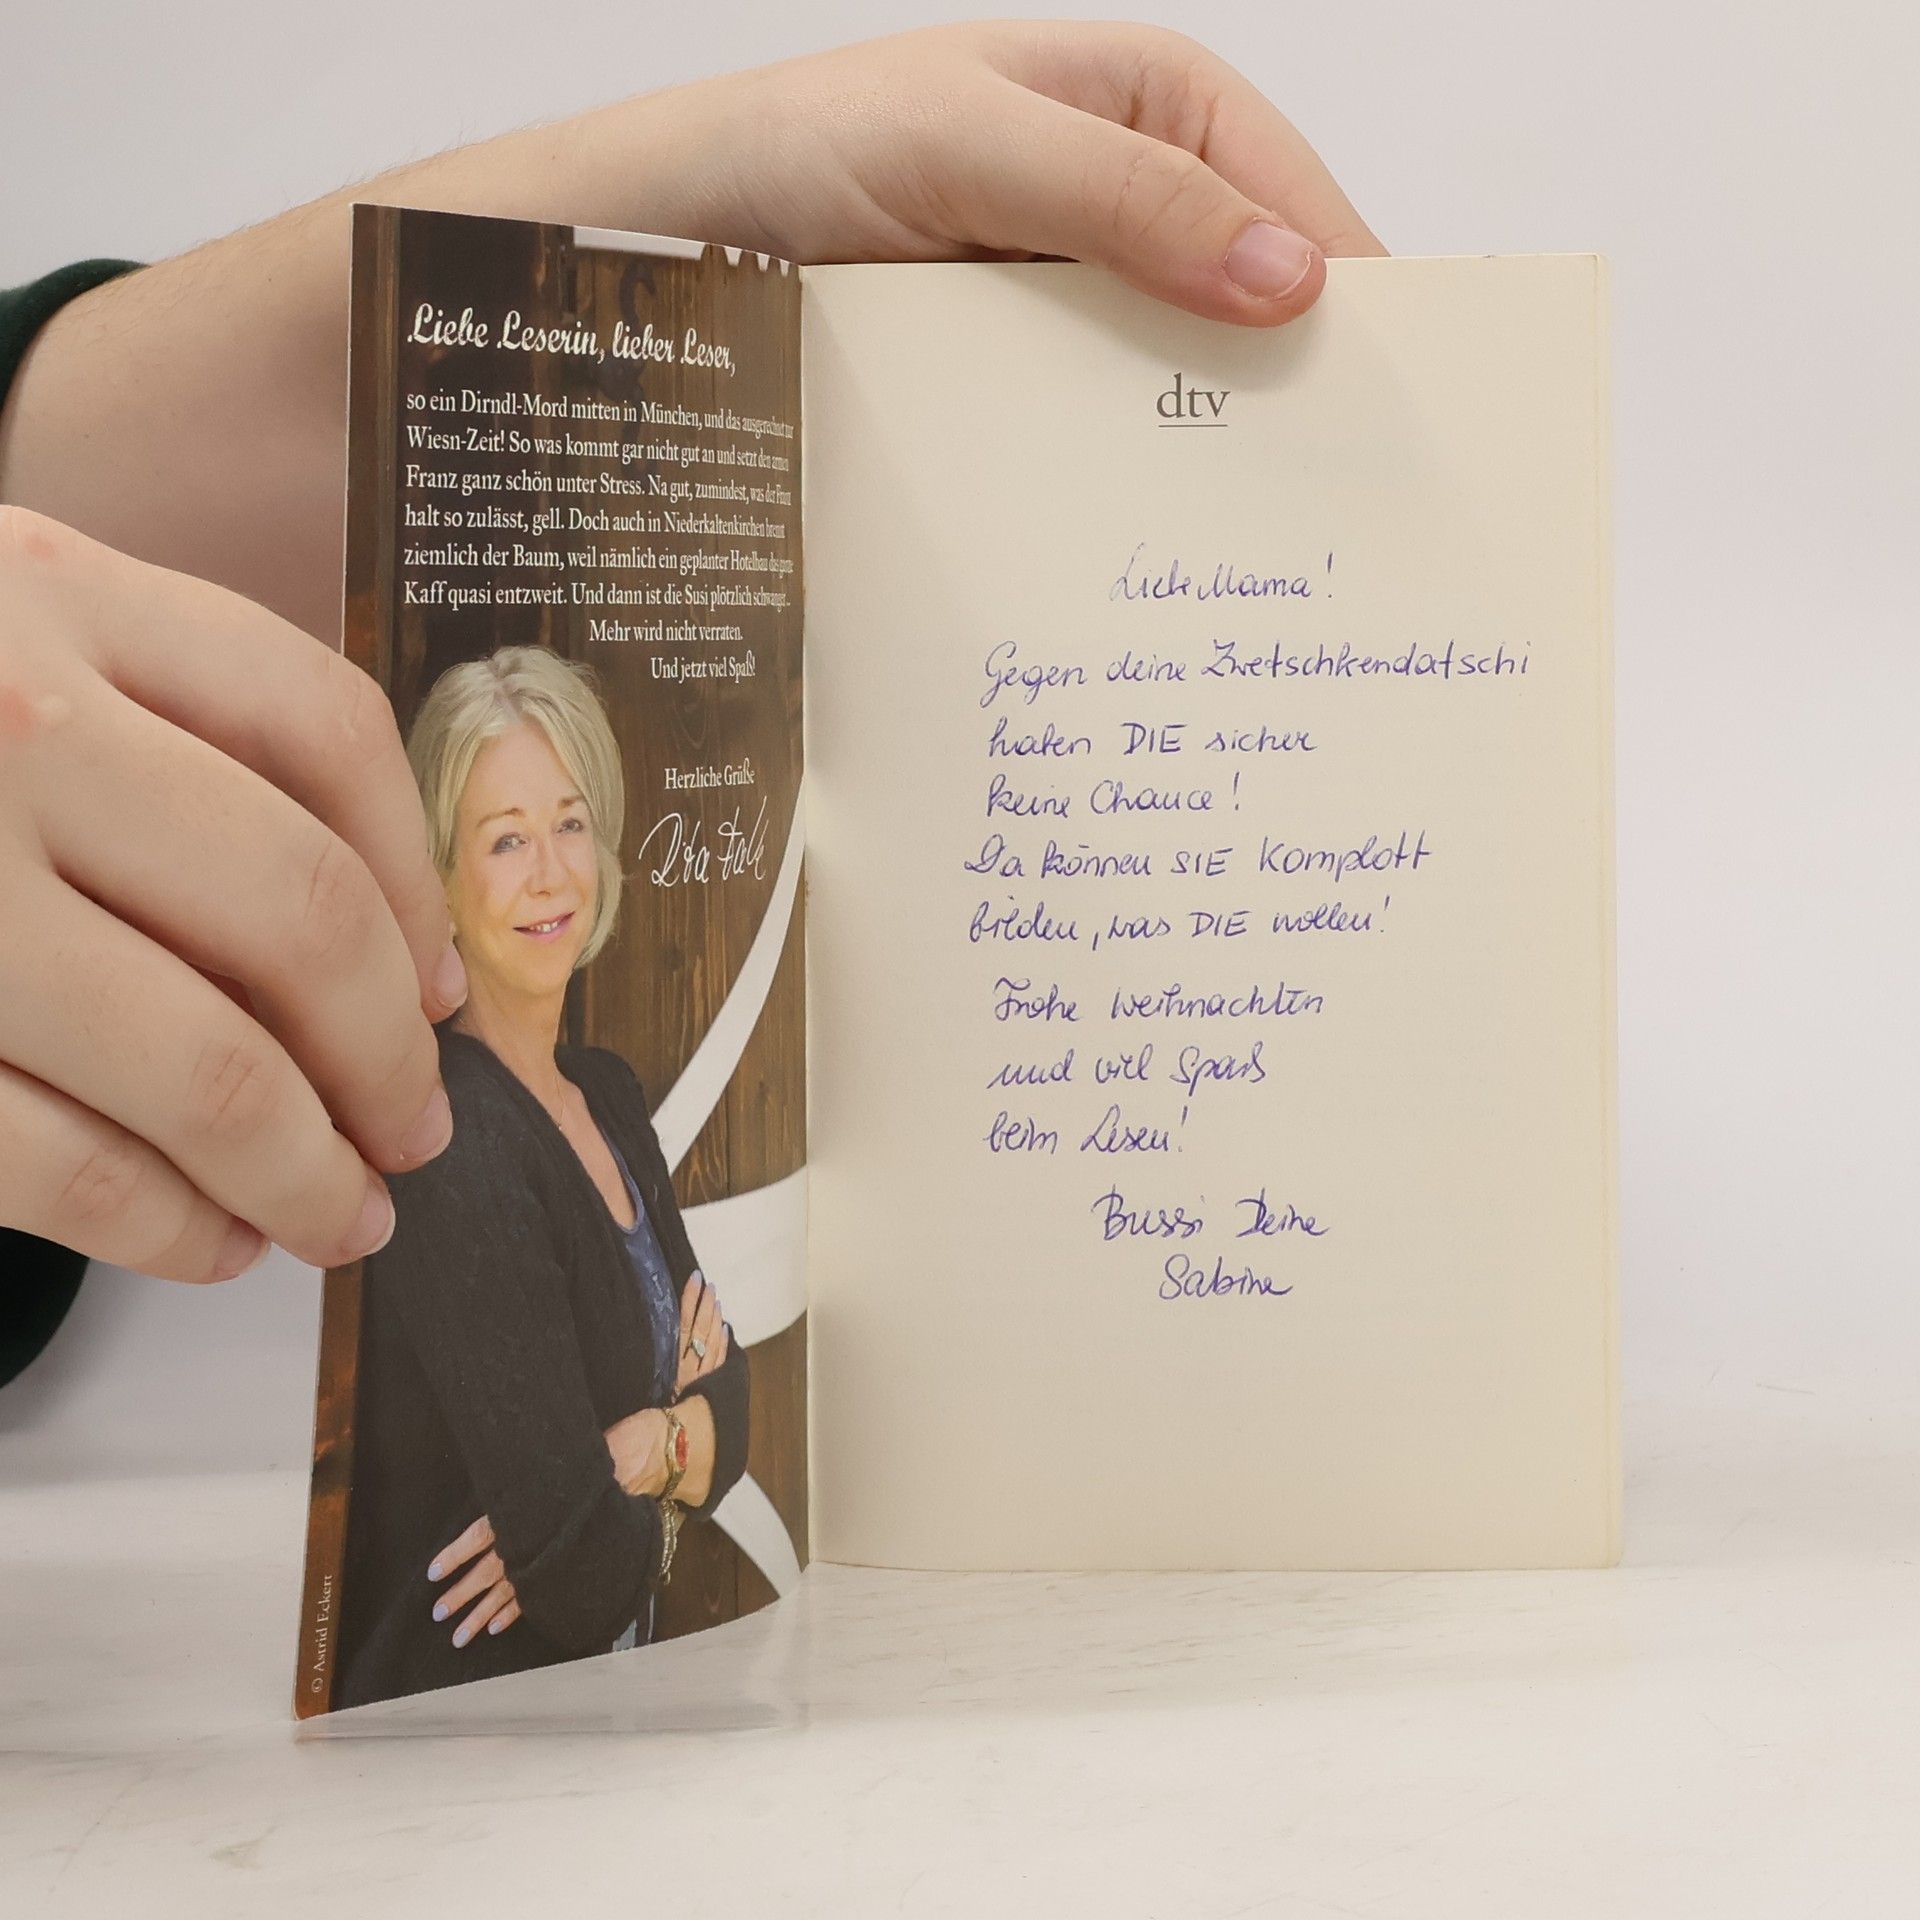 Liebe Leserin, lieber Leser,
so ein Dirndl-Mord mitten in München, und das ausgerechnet zur
Wiesn-Zeit! So was kommt gar nicht gut an und setzt den armen
Franz ganz schön unter Stress. Na gut, zumindest, was der Franz
halt so zulässt, gell. Doch auch in Niederkaltenkirchen brennt
ziemlich der Baum, weil nämlich ein geplanter Hotelbau das ganze
Kaff quasi entzweit. Und dann ist die Susi plötzlich schwanger...
Mehr wird nicht verraten.
Und jetzt viel Spaß!
Herzliche Grüße
Rita Falk
© Astrid Eckert
dtv
Liebe Mama!
Gegen deine Zwetschkendatschi
haben DIE sicher
keine Chance!
Da können SIE Komplott
bilden, was DIE wollen!
Frohe Weihnachten
und viel Spaß
beim Lesen!
Bussi Deine
Sabine